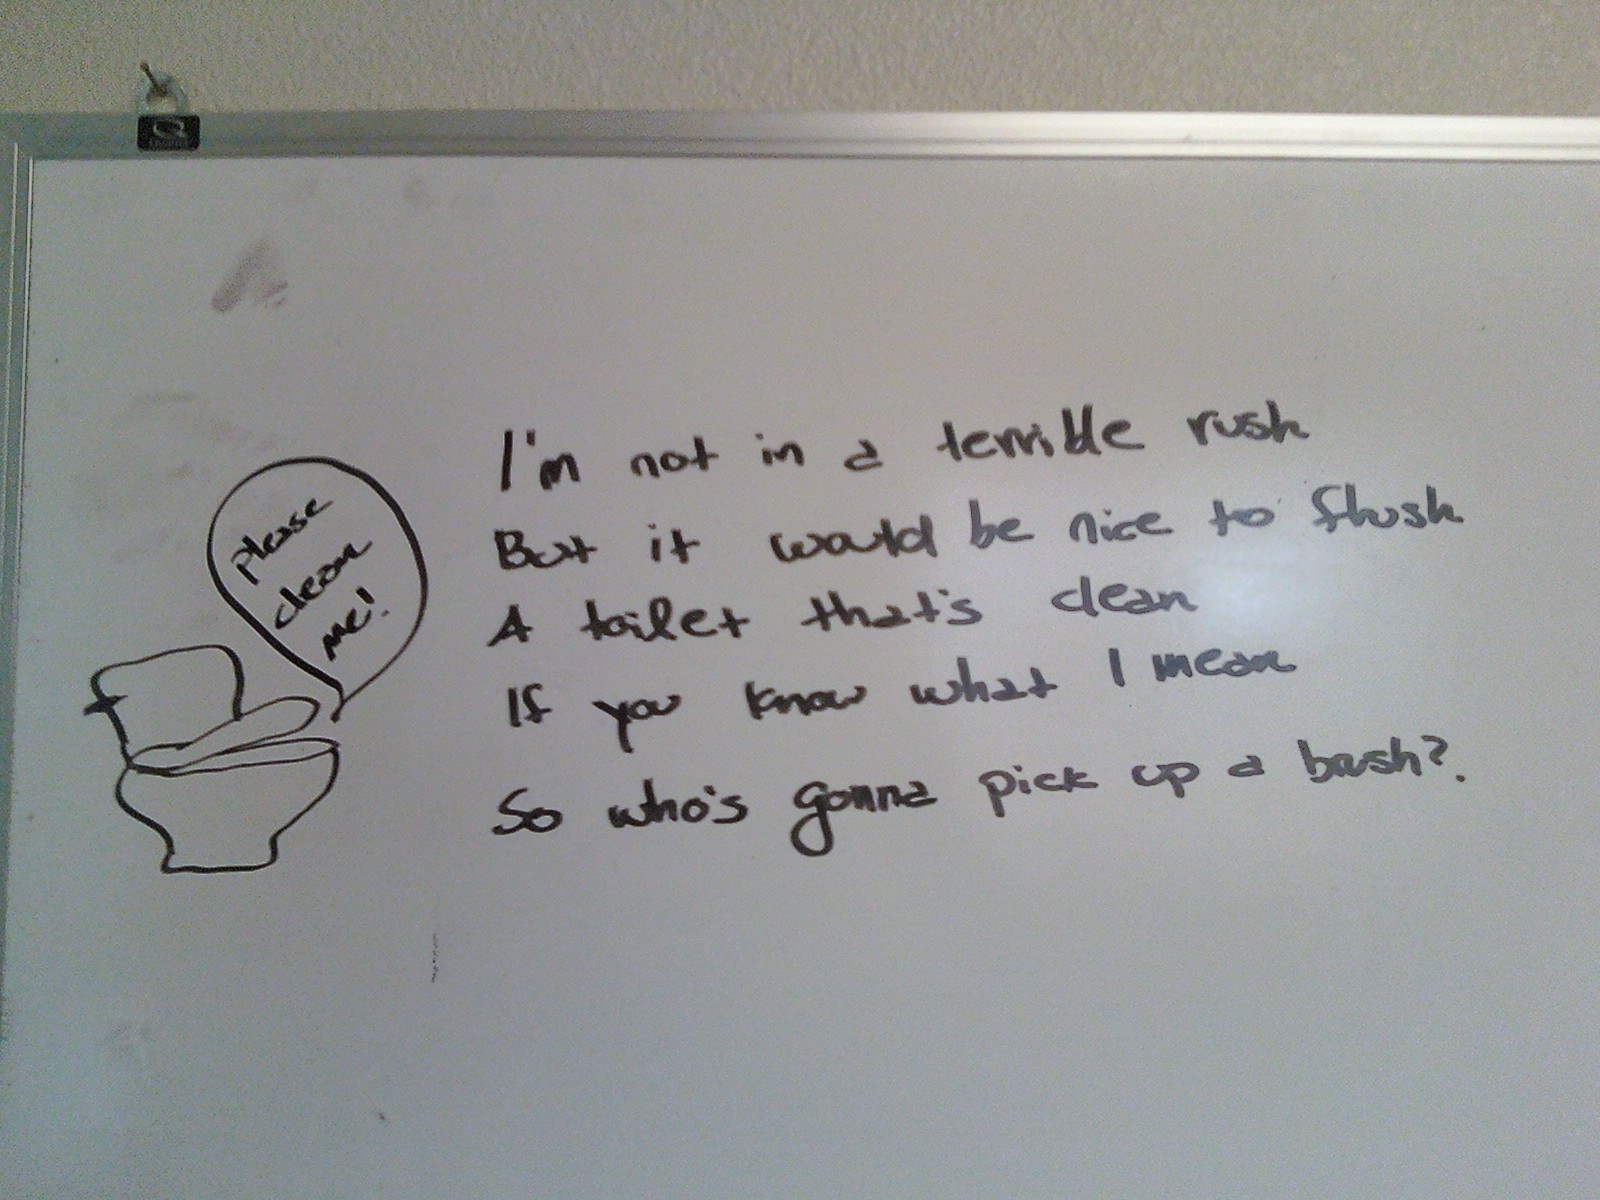 Please
clean
me!
I'm not in a terrible rush
But it would be nice to flush
A toilet that's clean
If you know what I mean
So who's gonna pick up a brush?.